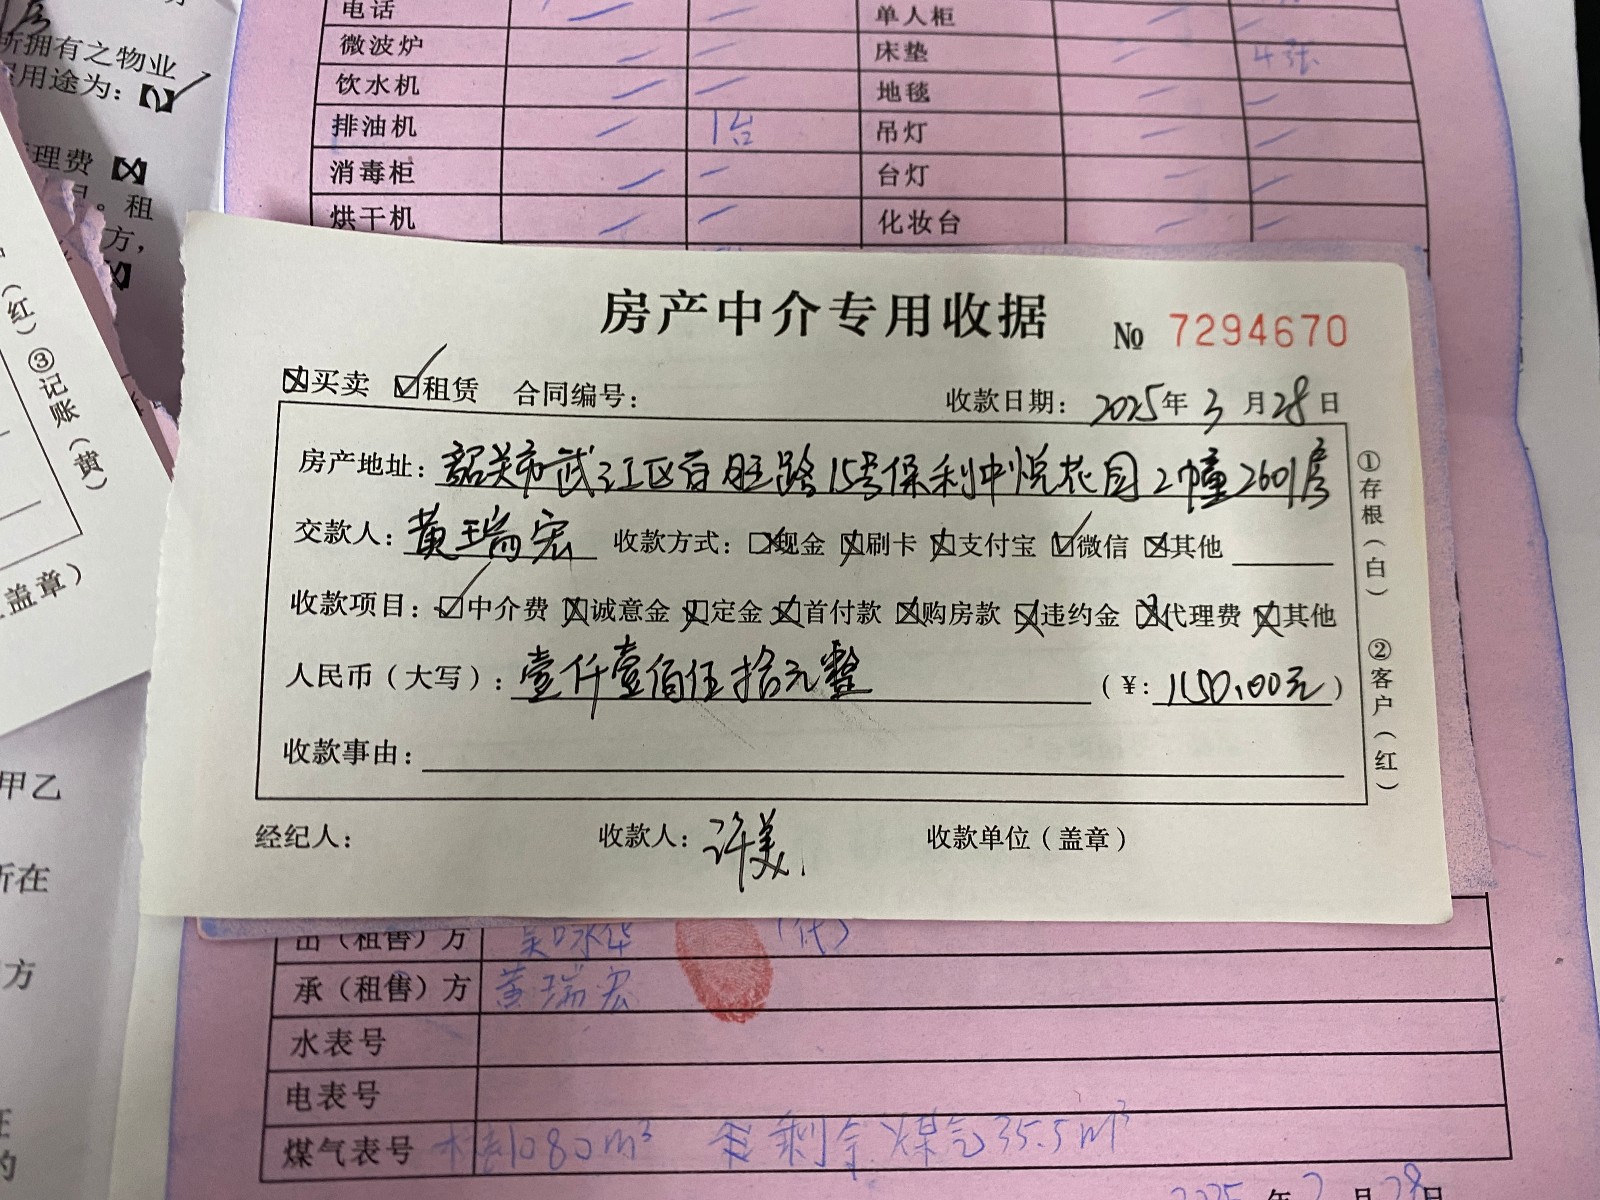 所拥有之物业
用途为：
理费
。租
方，
（红）③记账（黄）
盖章）
甲乙
所在
方
的
电话 单人柜
微波炉 床垫 4张
饮水机 地毯
排油机 1台 吊灯
消毒柜 台灯
烘干机 化妆台
房产中介专用收据 № 7294670
买卖 租赁 合同编号： 收款日期：2025年3月28日
房产地址：韶关市武江区百旺路15号保利中悦花园2幢2601房
交款人：黄瑞宏 收款方式：现金 刷卡 支付宝 微信 其他
收款项目：中介费 诚意金 定金 首付款 购房款 违约金 代理费 其他
人民币（大写）：壹仟壹佰伍拾元整 （￥：1150.00元）
收款事由：
经纪人： 收款人：许美 收款单位（盖章）
①存根（白） ②客户（红）
出（租售）方 吴咏华 （代）
承（租售）方 黄瑞宏
水表号
电表号
煤气表号 水表1080m³ 剩余煤气35.5m³
2025年3月28日